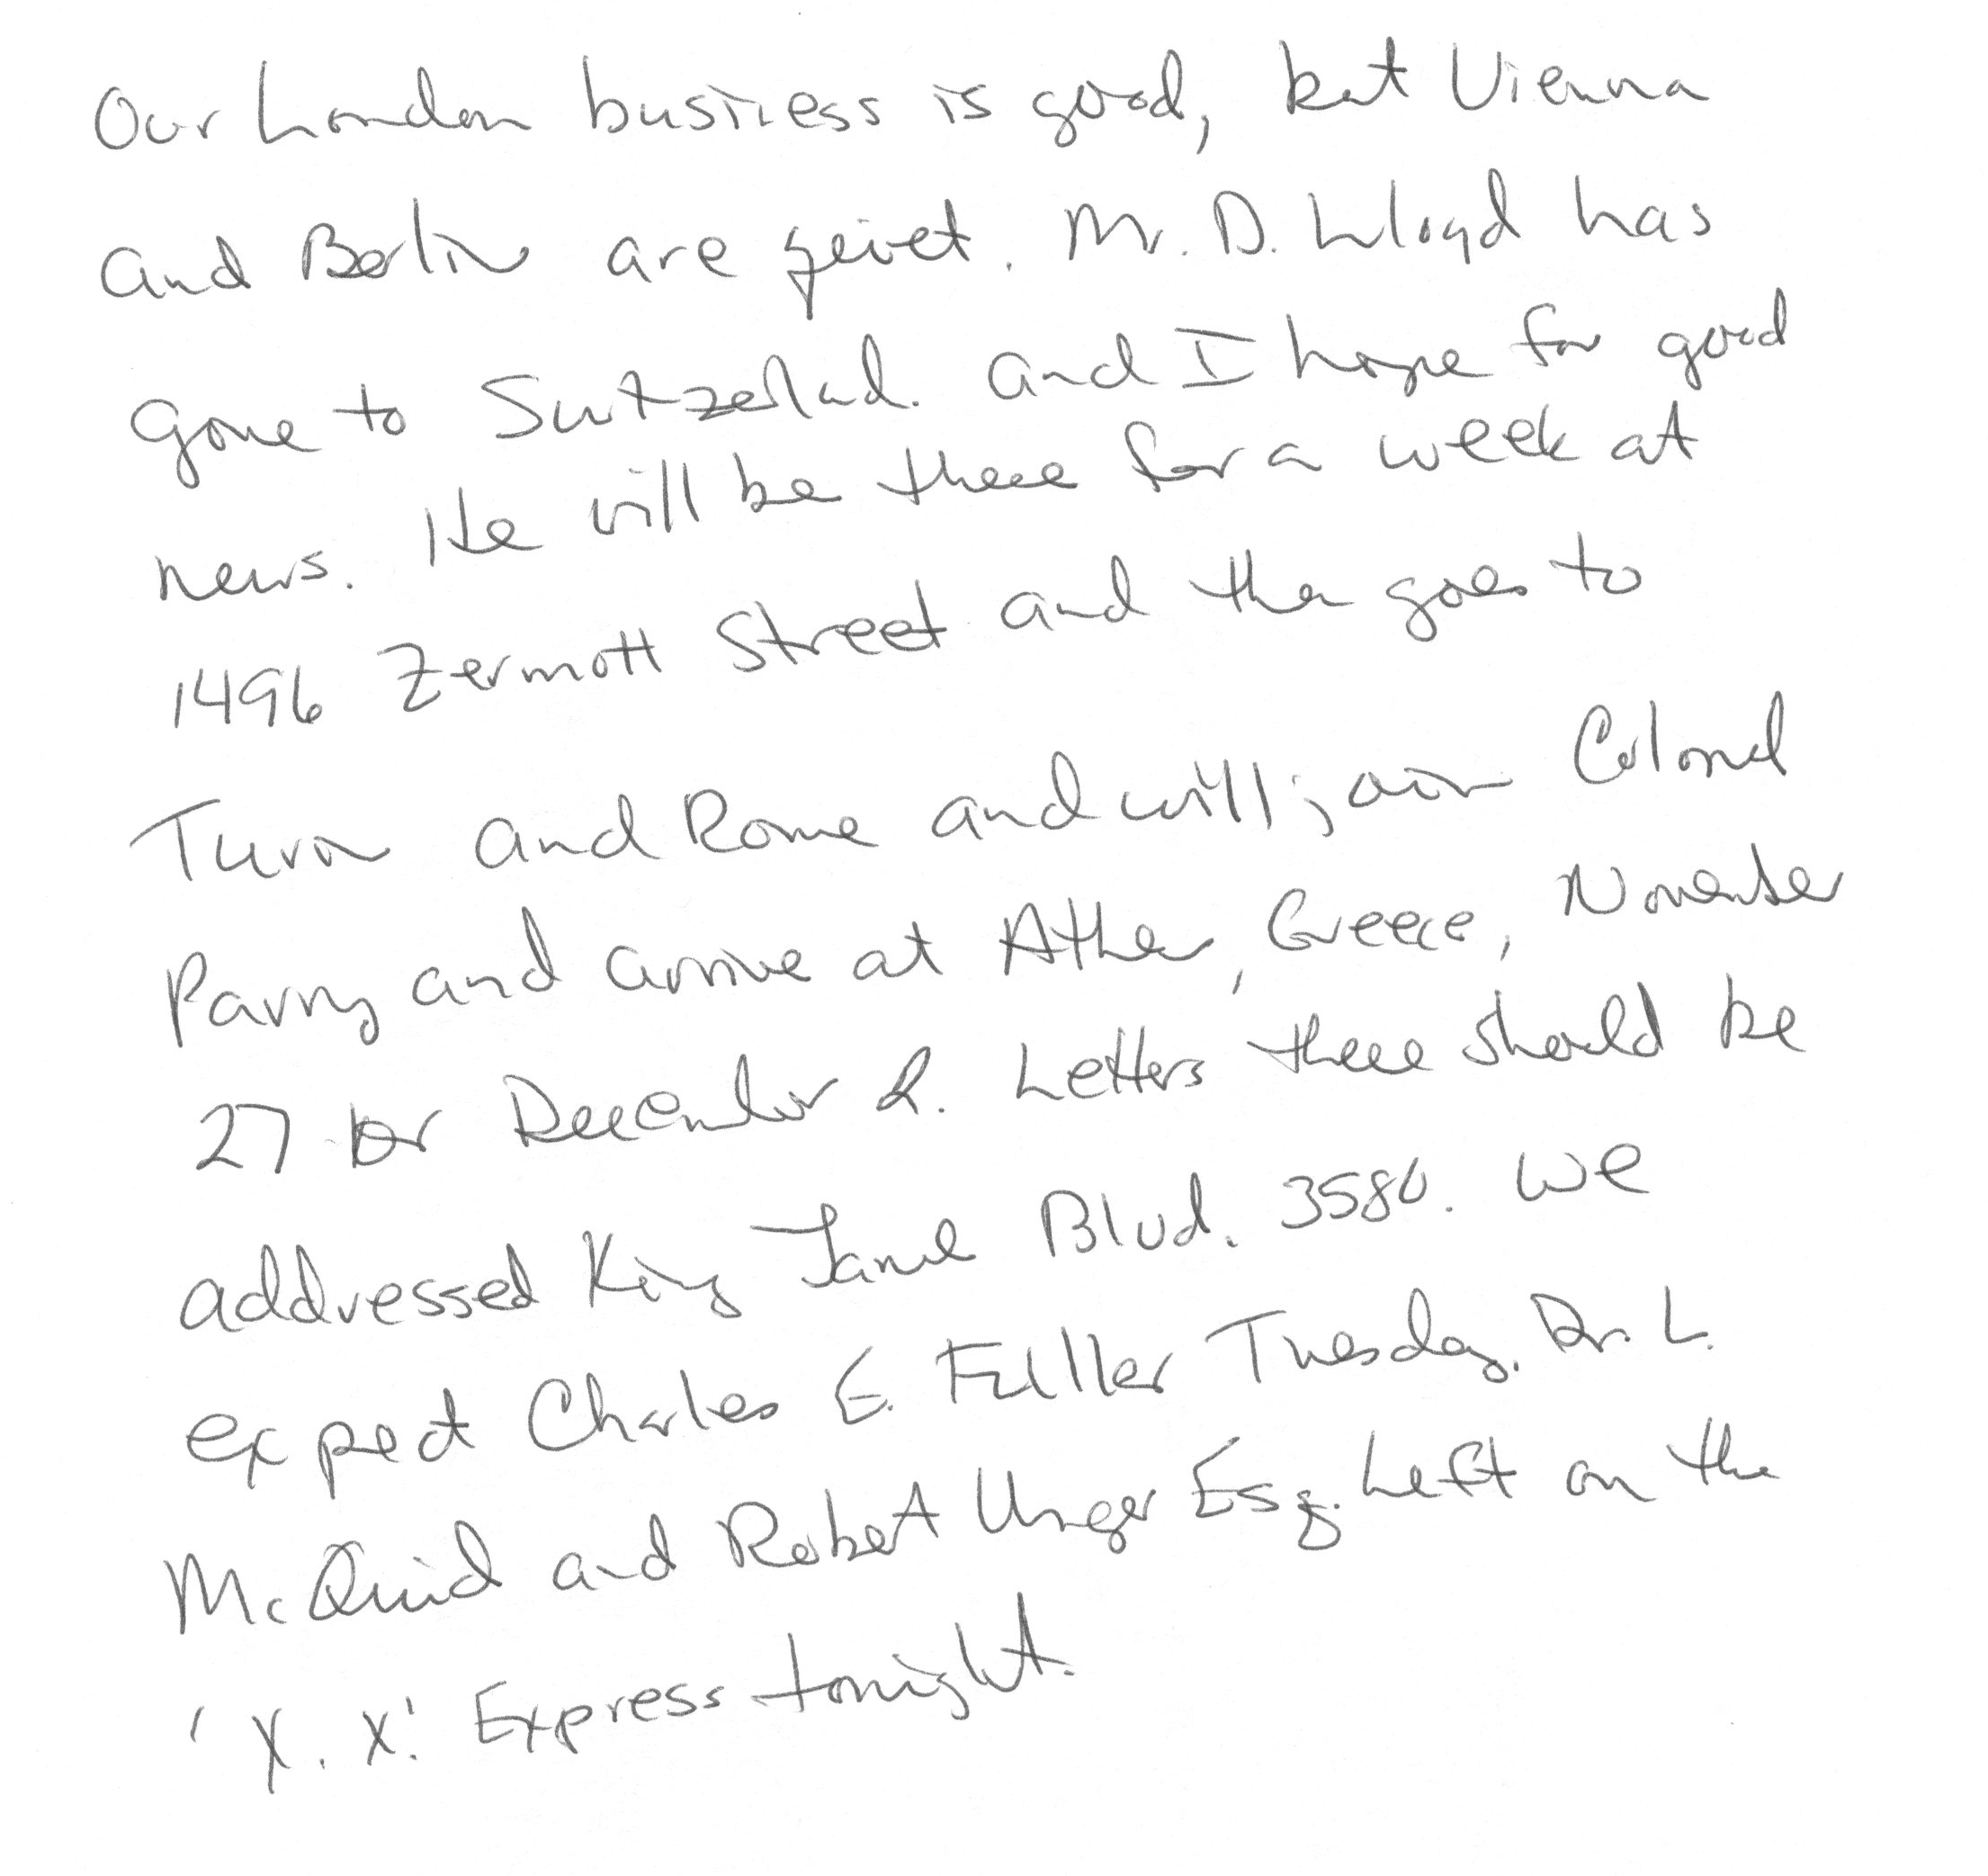 Our London business is good, but Vienna
and Berlin are quiet. Mr. D. Lloyd has
gone to Switzerland. and I hope for good
news. He will be there for a week at
1496 Zermott Street and then goes to
Turin and Rome and will join Colonel
Parry and arrive at Athens, Greece, November
27 or December 2. Letters there should be
addressed King James Blvd. 3580. We
expect Charles E. Fuller Tuesday. Dr. L.
McQuid and Robert Unger Esq. Left on the
'X. X.' Express tonight.